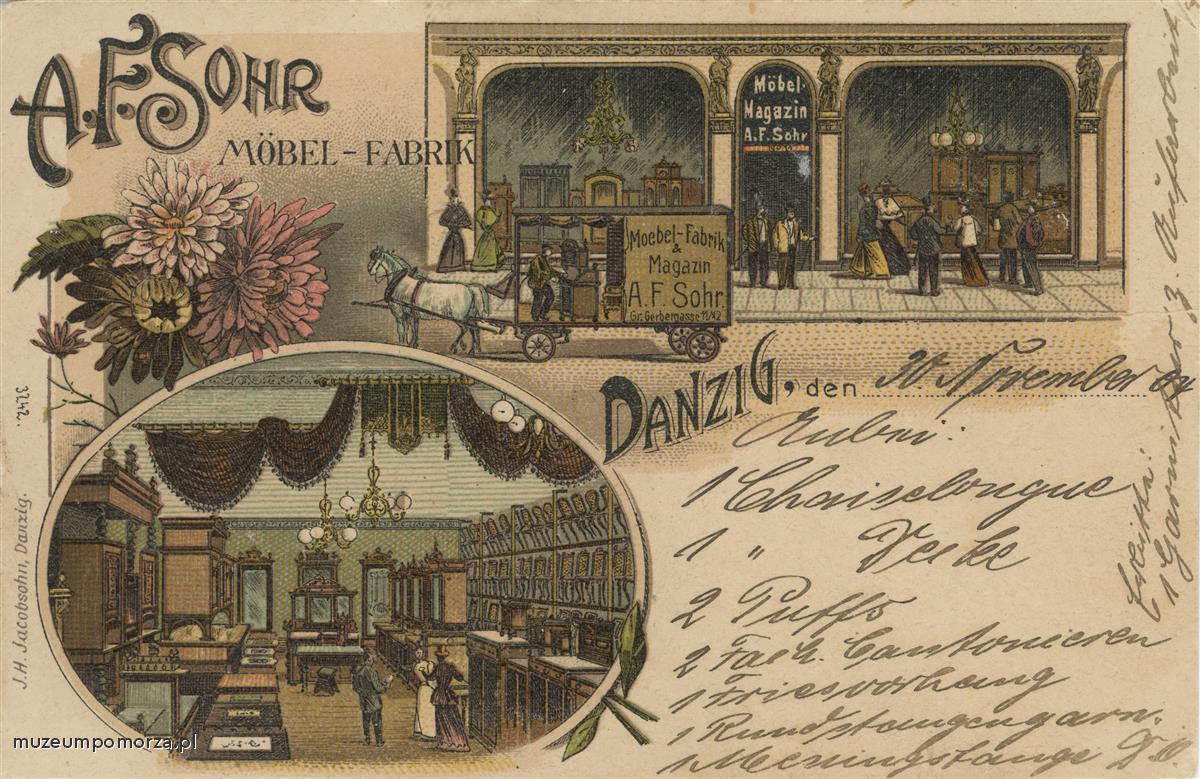 A. F. SOHR
MÖBEL-FABRIK
Möbel-
Magazin
A. F. Sohr
Moebel-Fabrik
&
Magazin
A. F. Sohr.
Gr. Gerbergasse 11/12
DANZIG, den 30. November 02
1 Chaiselongue
1 " Decke
2 Puffs
2 Fach. Cantonieren
1 Friesvorhang
1 Rundstangengarn.
1 Messingstange
1 Garnitur z.
3242.
J.H. Jacobsohn, Danzig.
muzeumpomorza.pl